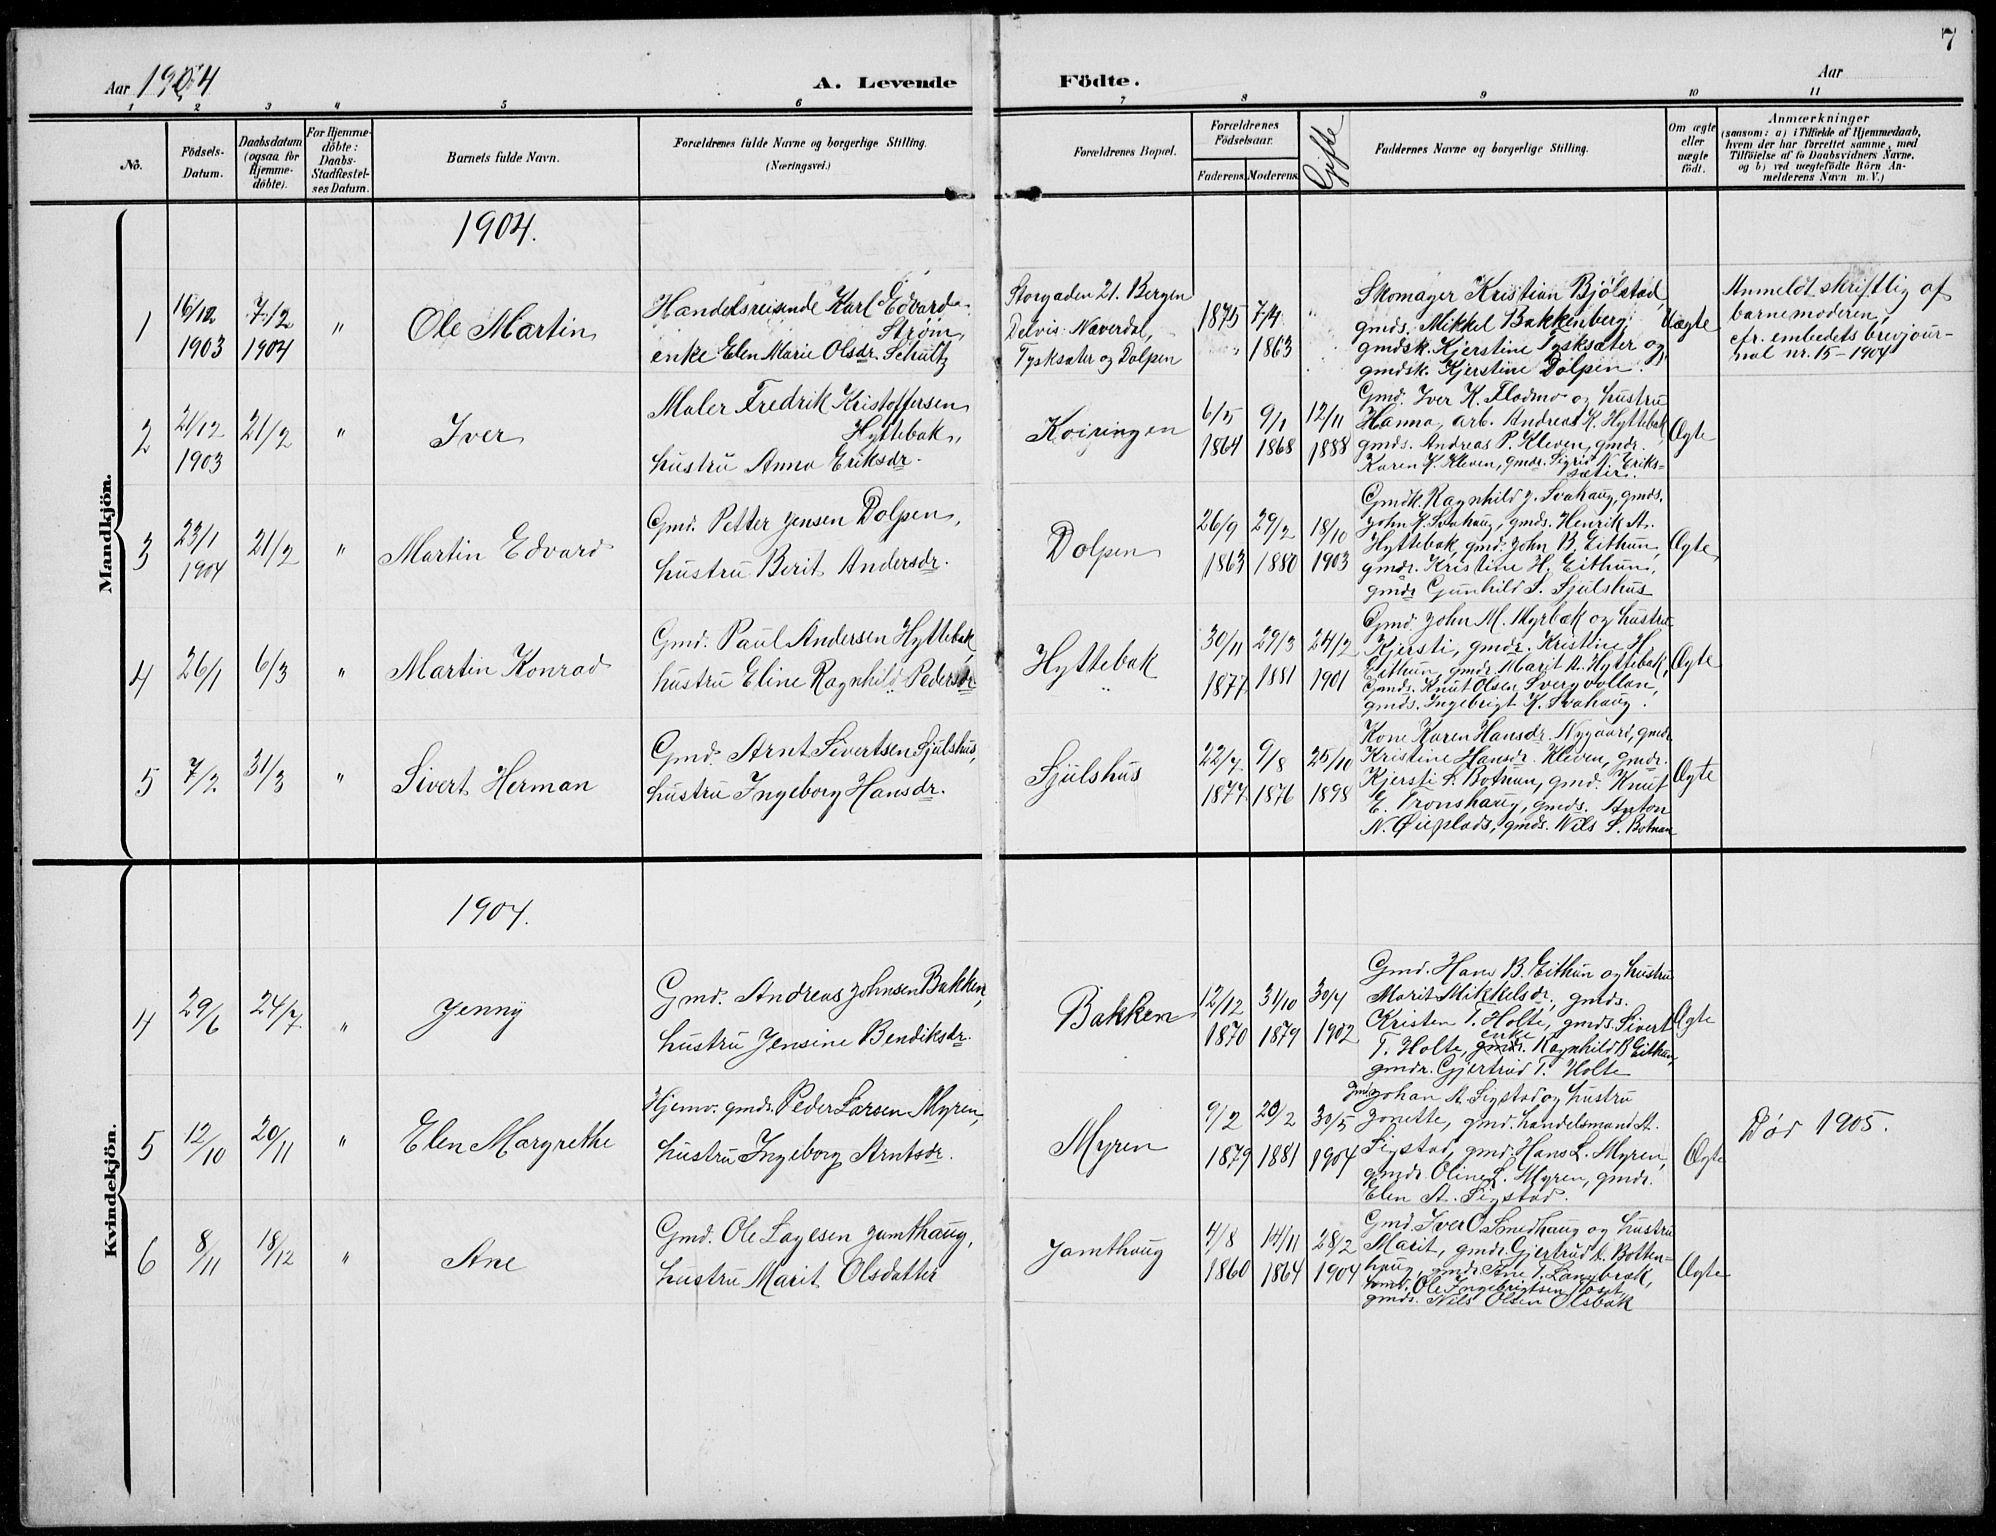 7
Aar 1904
A. Levende Födte.
Aar
1 2 3 4 5 6 7 8 9 10 11
No.
Födsels-
Datum.
Daabsdatum
(ogsaa for
Hjemme-
döbte).
For Hjemme-
döbte:
Daabs-
Stadfæstel-
ses Datum.
Barnets fulde Navn.
Forældrenes fulde Navne og borgerlige Stilling.
(Næringsvei.)
Forældrenes Bopæl.
Forældrenes
Födselsaar.
Faderens. Moderens.
Gifte
Faddernes Navne og borgerlige Stilling.
Om ægte
eller
uægte
födt.
Anmærkninger
(saasom: a) i Tilfælde af Hjemmedaab,
hvem der har forrettet samme, med
Tilföielse af to Daabsvidners Navne,
og b) ved uægtefödte Börn An-
melderens Navn m. V.)
Mandkjön.
1904.
1
16/12
1903
7/2
1904
"
Ole Martin
Handelsreisende Karl Edvard
Strøm,
enke Elen Marie Olsdr. Schultz
Storgaden 21. Bergen
Delvis Naverdal,
Tysksæter og Dolpen
1875
7/4
1863
Skomager Kristian Bjölstad,
gmds. Mikkel Bakkenberg,
gmdsk. Kjerstine Tysksæter og
gmdsk. Kjerstine Dolpen.
Uægte
Anmeldt skriftlig af
barnemoderen,
cfr. embedets brevjour-
nal nr. 15 - 1904
2
21/12
1903
21/2
"
Iver
Maler Fredrik Kristoffersen
Hyttebak,
hustru Anna Eriksdr.
Koiringen
6/5
1864
9/1
1868
12/11
1888
Gmd. Iver K. Flodmo og hustru
Hanna, arb. Andreas K. Hyttebak
gmds. Andreas P. Kleven, gmdr.
Karen K. Kleven, gmdr. Sigrid N. Eriks-
sæter.
Ægte
3
23/1
1904
21/2
"
Martin Edvard
Gmd. Petter Jensen Dolpen,
hustru Berit Andersdr.
Dolpen
26/9
1863
29/2
1880
18/10
1903
Gmdk. Ragnhild J. Svahaug, gmds.
John K. Svahaug, gmds. Henrik A.
Hyttebak, gmd. John B. Eithun,
gmdr. Kristine H. Eithun,
gmdr Gunhild S. Sjulshus
Ægte
4
26/1
6/3
"
Martin Konrad
Gmd. Paul Andersen Hyttebak
hustru Eline Ragnhild Pedersdr
Hyttebak
30/11
1877
29/3
1881
24/2
1901
Gmd. John M. Myrbak og hustru
Kjersti, gmdr. Kristine H.
Eithun, gmdr. Marit A. Hyttebak,
Gmds. Knut Olsen Svergvollan,
gmds. Ingebrigt K. Svahaug.
Ægte
5
7/2
31/3
"
Sivert Herman
Gmd. Arnt Sivertsen Sjulshus,
hustru Ingeborg Hansdr.
Sjulshus
22/7
1877
9/8
1876
25/10
1898
Kone Karen Hansdr. Nygaard, gmdr.
Kristine Hansdr. Kleven, gmdr.
Kjersti S. Botnan, gmd. Knut
E. Tronshaug, gmds. Anton
N. Øieplads, gmds. Nils S. Botnan
Ægte
Kvindekjön.
1904.
4
29/6
24/7
"
Jenny
Gmd. Andreas Johnsen Bakken,
hustru Jensine Bendiksdr.
Bakken
12/12
1870
31/10
1879
30/4
1902
Gmd. Hans B. Eithun og hustru
Marit Mikkelsdr, gmds.
Kristen T. Holte, gmds. Sivert
enke
T. Holte, gmdr. Ragnhild B Eithun,
gmdr. Gjertrud T. Holte
Ægte
5
12/10
20/11
"
Elen Margrethe
Hjemv. gmds. Peder Larsen Myren,
hustru Ingeborg Arntsdr.
Myren
9/2
1879
20/2
1881
30/5
1904
Gmd. Johan A. Sigstad og hustru
Jonette, gmd. handelsmand A.
Sigstad, gmd. Hans L. Myren,
gmdr. Oline L. Myren, gmdr.
Elen A. Sigstad.
Ægte
Død 1905.
6
8/11
18/12
"
Ane
Gmd. Ole Lagesen Jamthaug,
hustru Marit Olsdatter
Jamthaug
4/8
1860
14/11
1864
28/2
1904
Gmd. Iver O Smedhaug og hustru
Marit, gmdr. Gjertrud E. Botten-
haug, gmdr. Ane T. Langbrak,
Gmd. Ole Ingebrigtsen Moset,
gmds. Nils Olsen Olsbak
Ægte